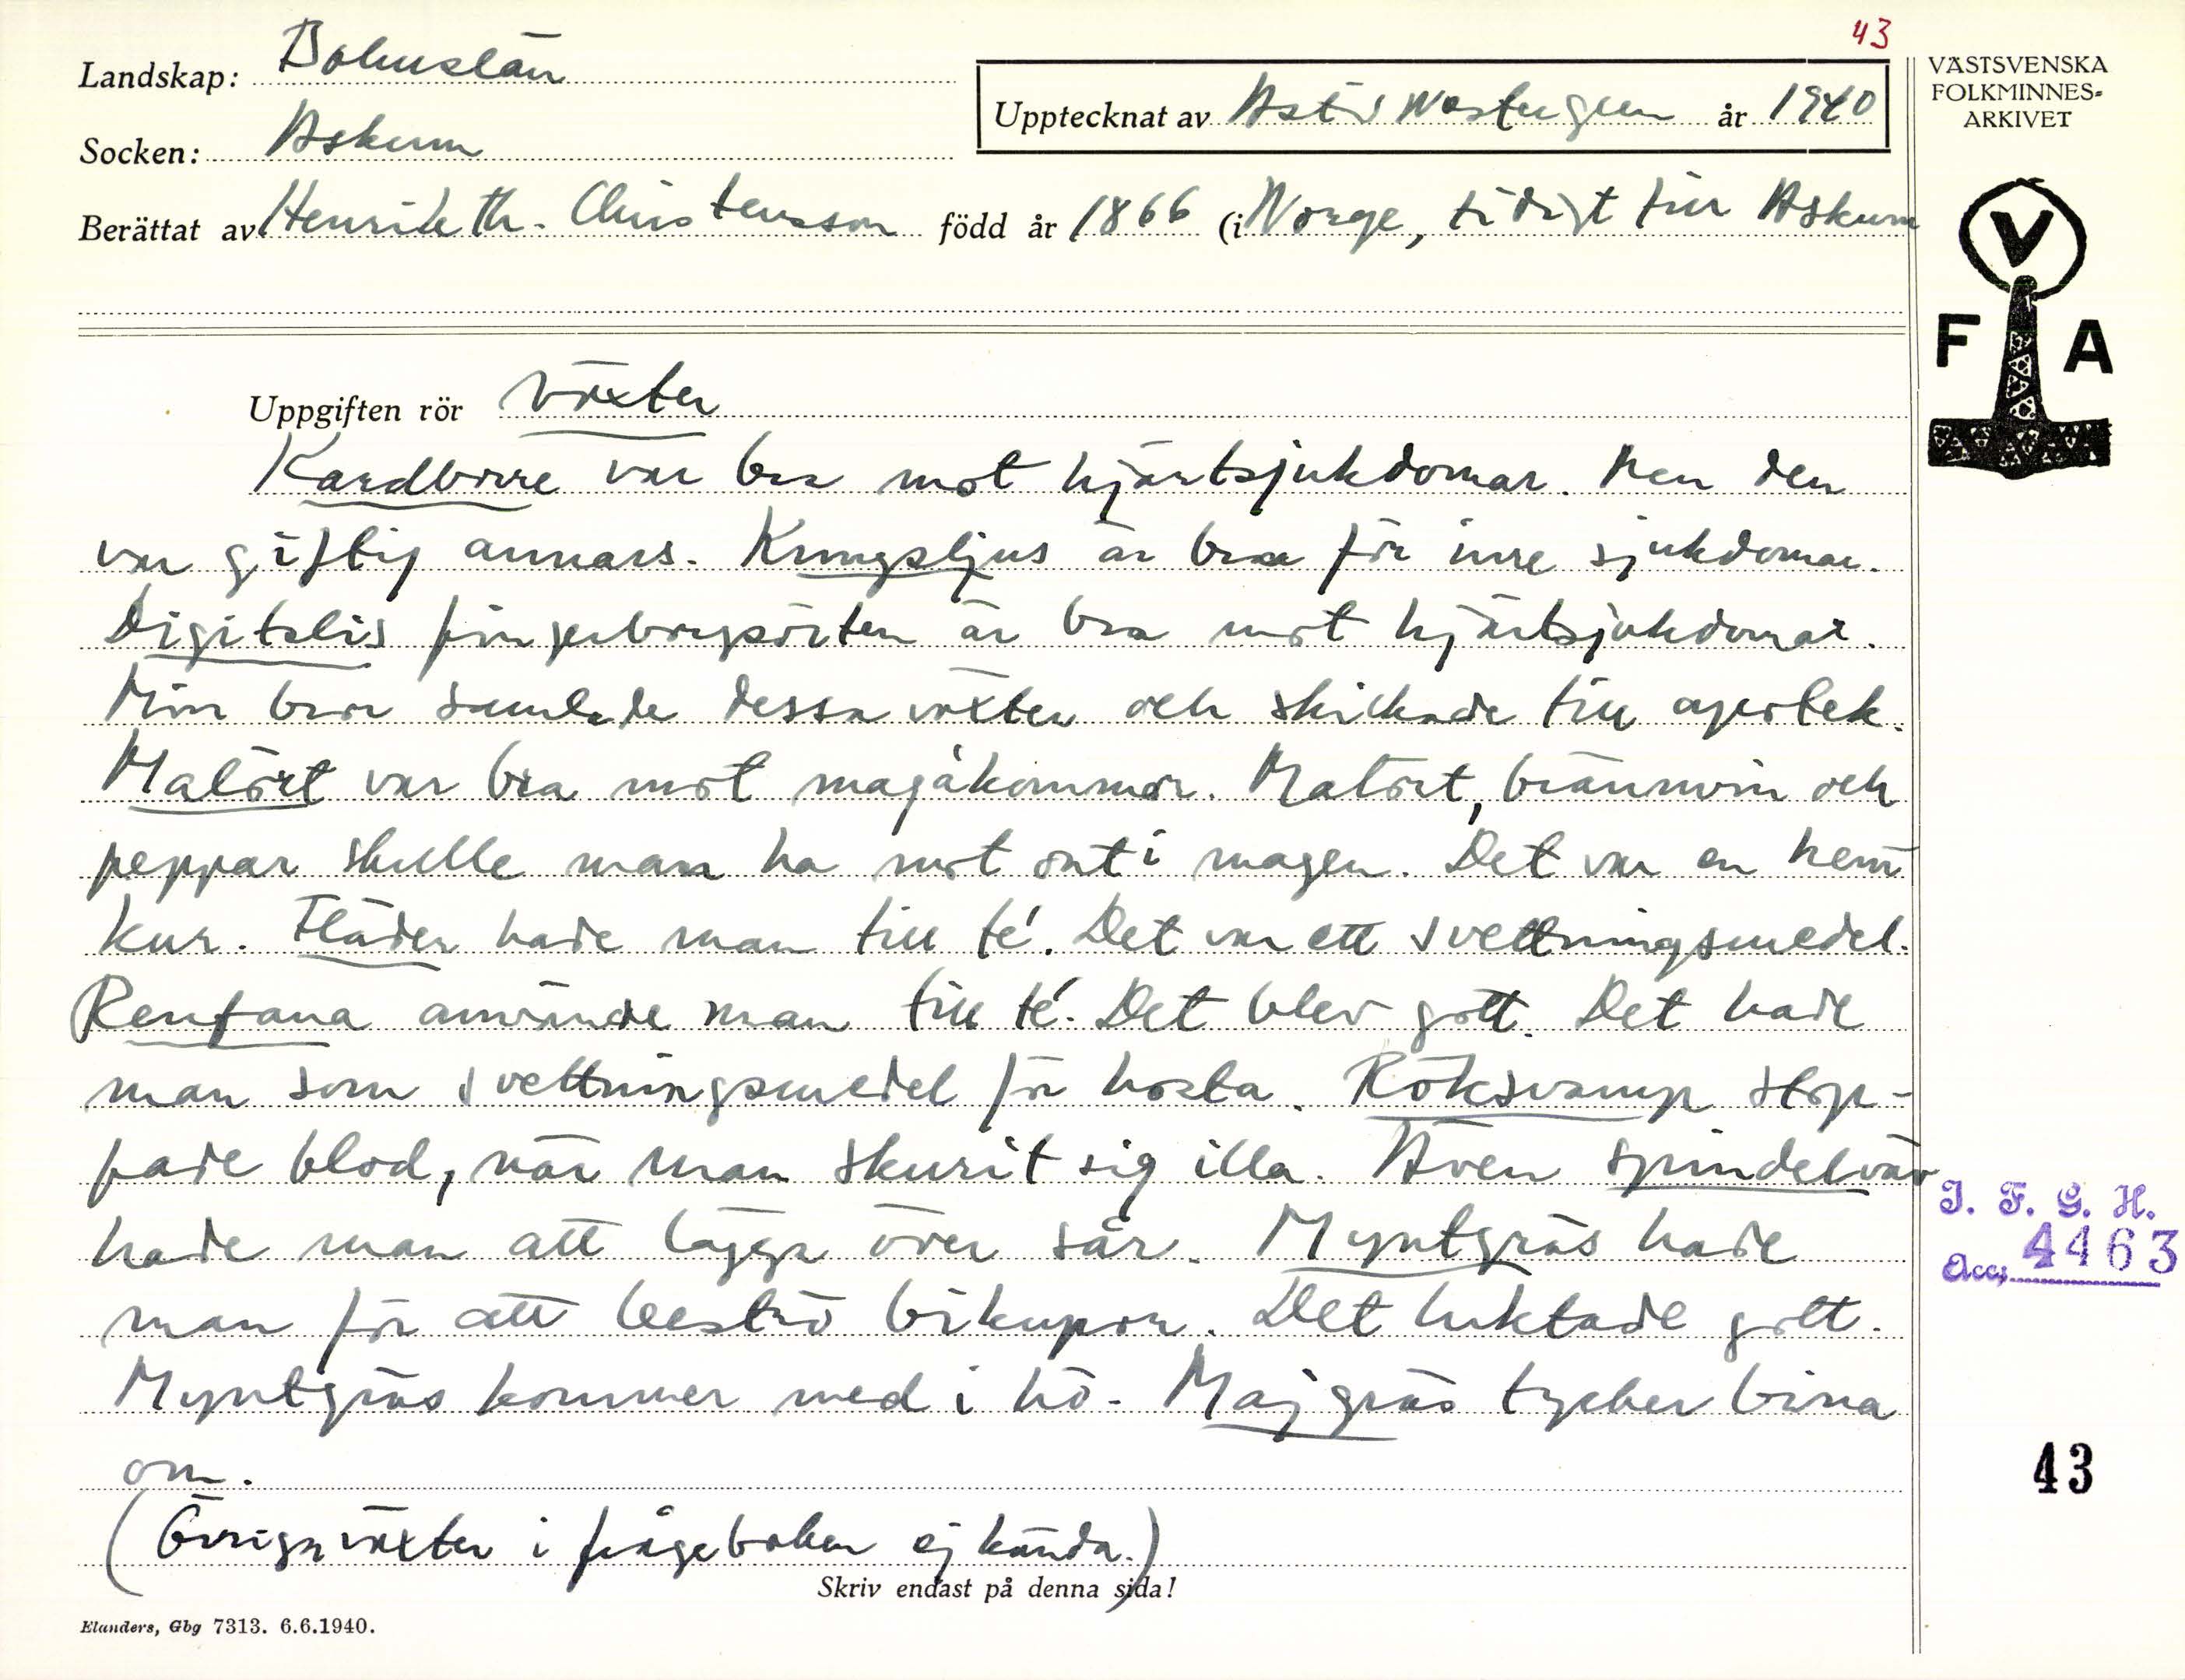 43
Landskap: Bohuslän
Upptecknat av Astrid Westergren år 1940
VÄSTSVENSKA
FOLKMINNES-
ARKIVET
Socken: Askum
Berättat av Henrik Th. Christensson född år 1866 (i Norge, tidigt till Askum
V
F A
Uppgiften rör växter
Kardborre var bra mot hjärtsjukdomar. Men den
var giftig annars. Kungsljus är bra för inre sjukdomar.
Digitalis fingerborgsörten är bra mot hjärtsjukdomar.
Min bror samlade dessa växter och skickade till apotek.
Malört var bra mot magåkommor. Malört, brännvin och
peppar skulle man ha mot ont i magen. Det var en hem
kur. Fläder hade man till té. Det var ett svettningsmedel.
Renfana använde man till té. Det blev gott. Det hade
man som svettningsmedel för hosta. Röksvamp stop-
pade blod, när man skurit sig illa. Även spindelväv
hade man att lägga över sår. Myntgräs hade
man för att beströ bikupor. Det luktade gott.
Myntgräs kommer med i hö. Majgräs tycker bina
om.
(Övriga växter i frågeboken ej kända.)
Skriv endast på denna sida!
Elanders, Gbg 7313. 6.6.1940.
I. F. G. H.
Acc. 4463
43